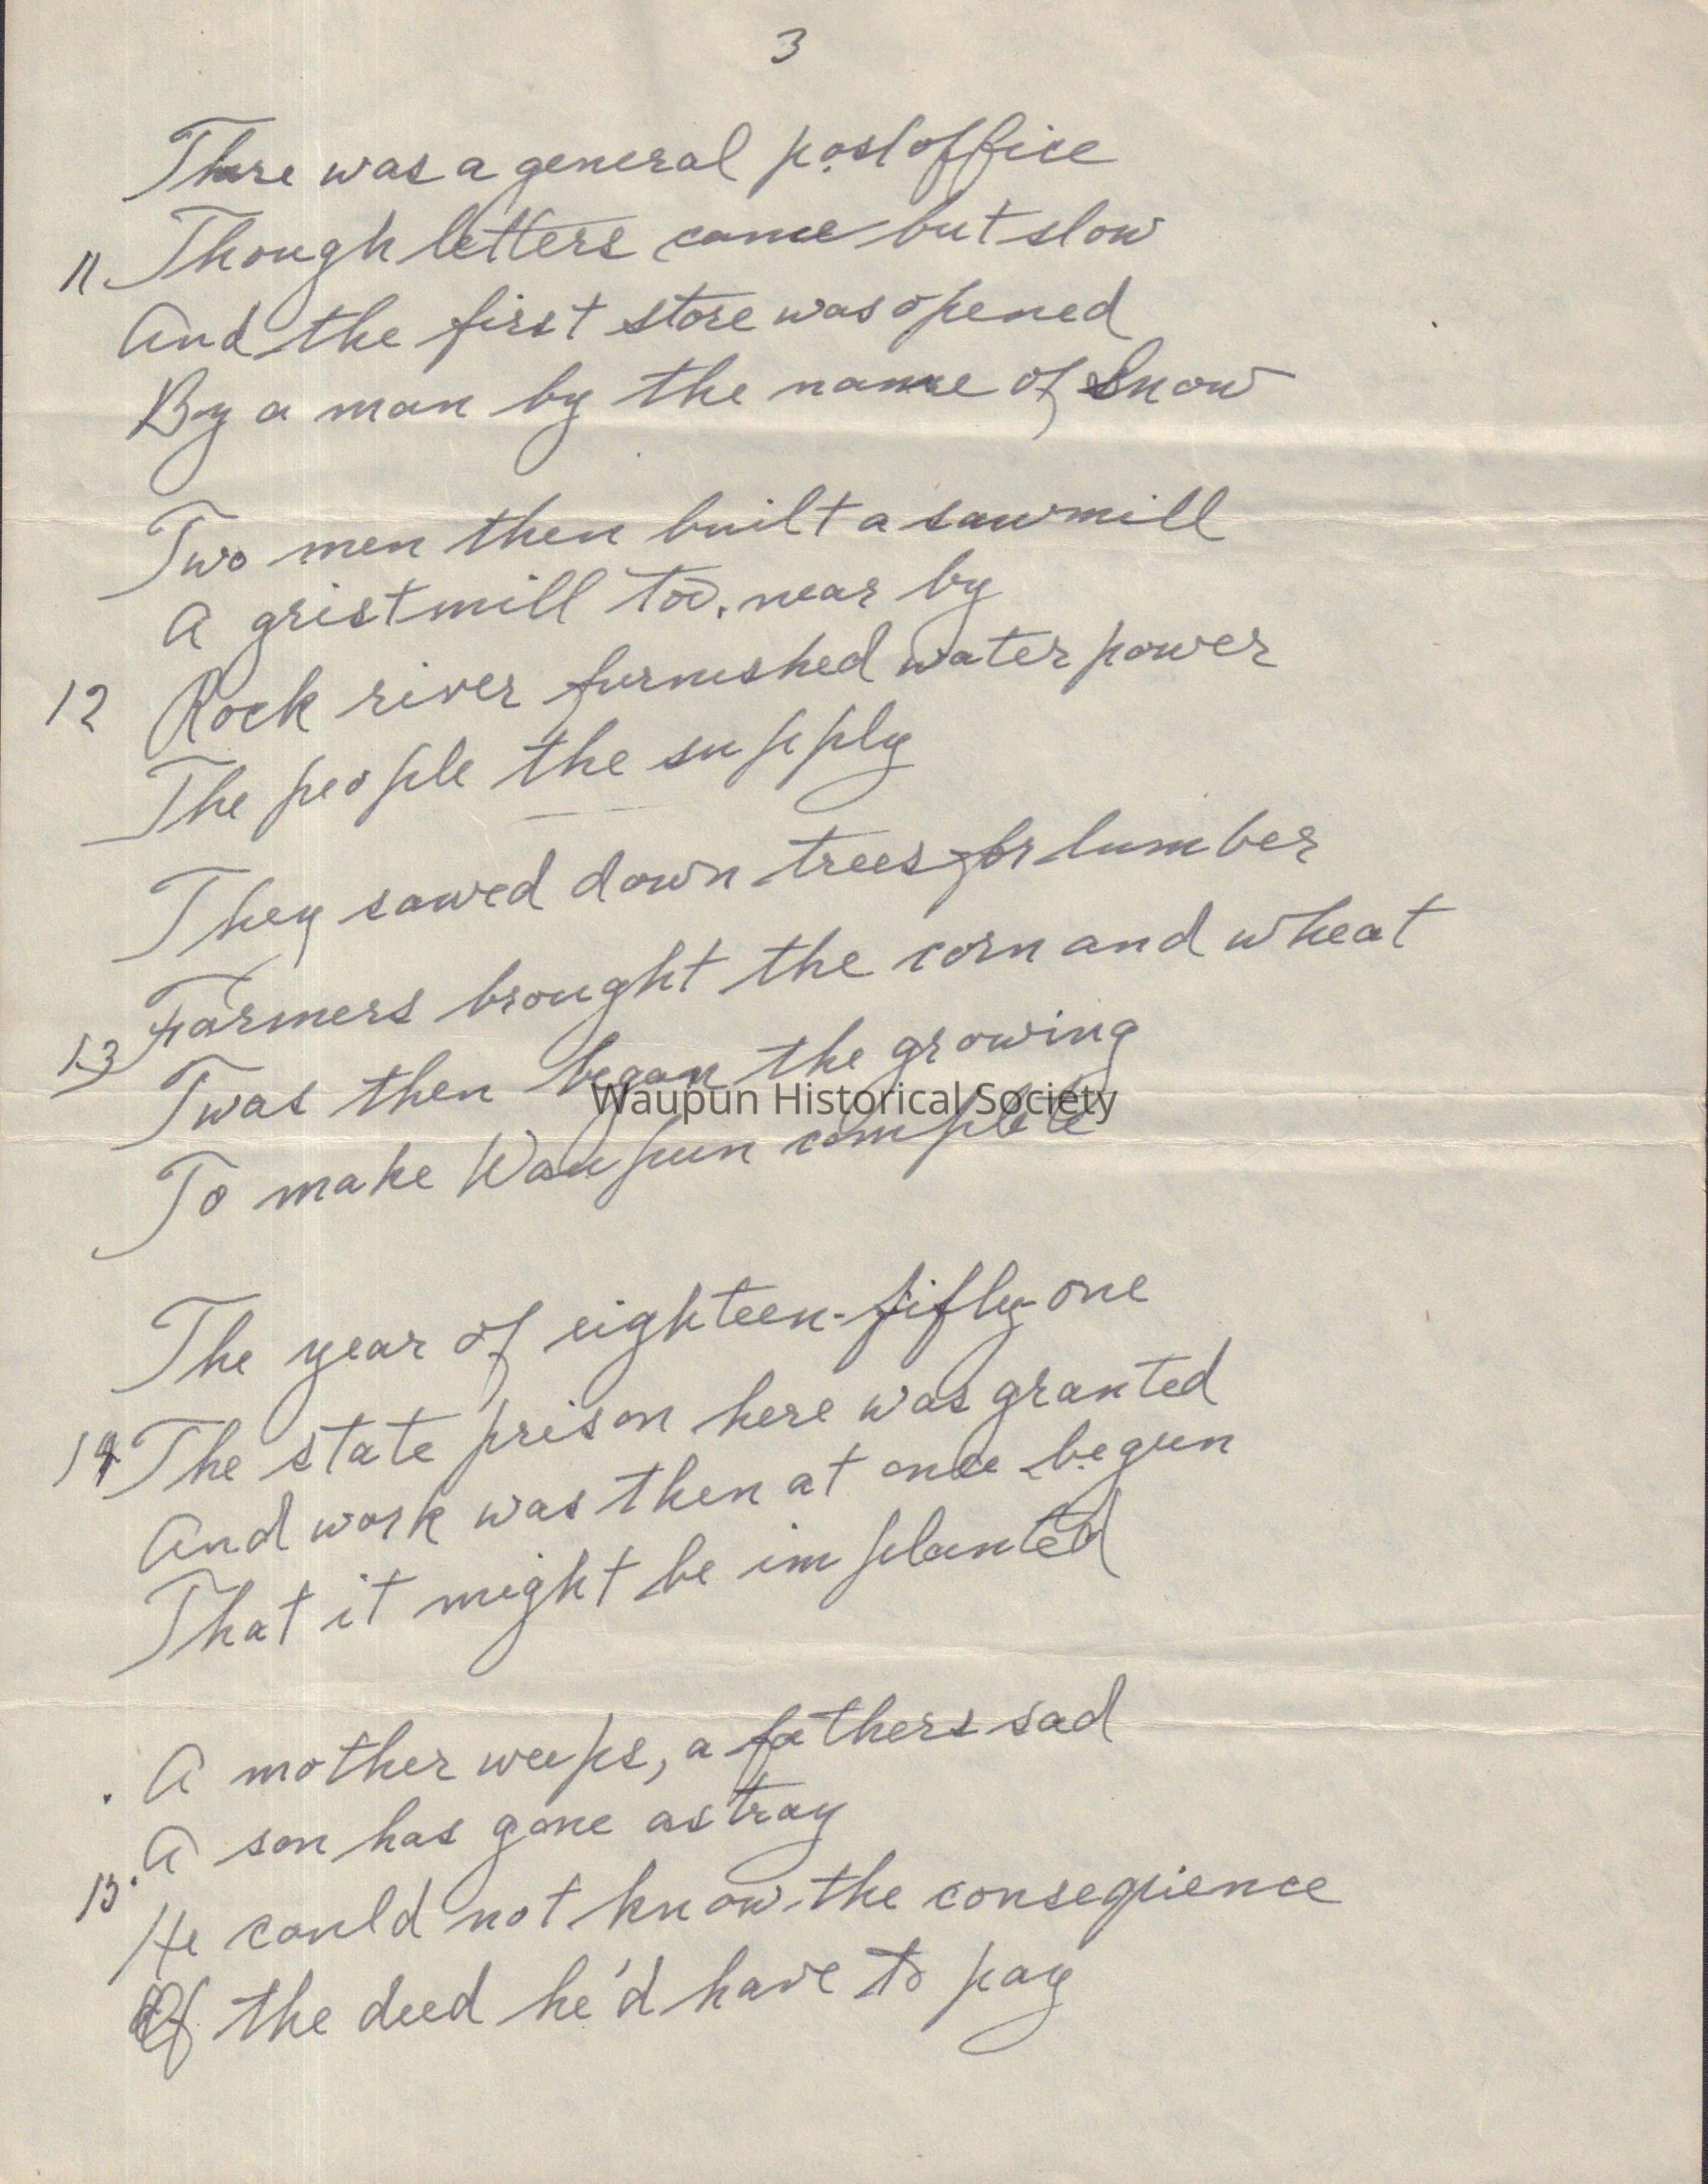 3
There was a general postoffice
11. Though letters came but slow
And the first store was opened
By a man by the name of Snow
Two men then built a sawmill
A gristmill too, near by
12 Rock river furnished water power
The people the supply
They sawed down trees for lumber
Farmers brought the corn and wheat
13 Twas then began the growing
Waupun Historical Society
To make Waupun complete
The year of eighteen-fifty-one
14 The state prison here was granted
And work was then at once begun
That it might be implanted
A mother weeps, a fathers sad
A son has gone astray
15. He could not know the consequence
Of the deed he'd have to pay